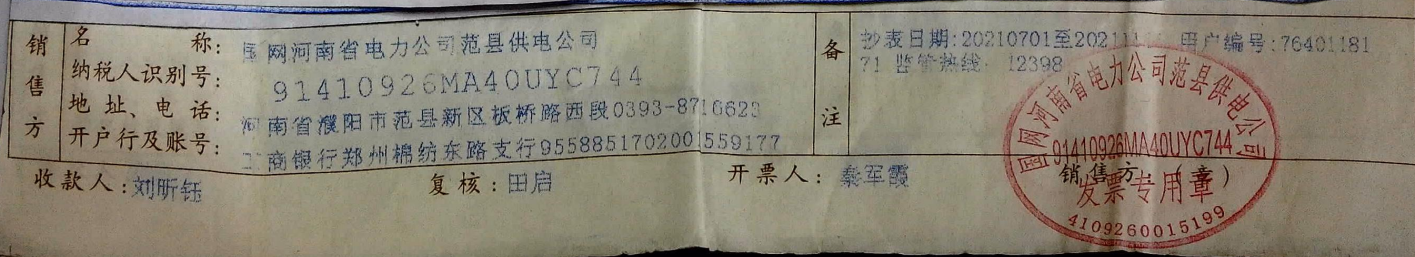 销售方
名称: 国网河南省电力公司范县供电公司
纳税人识别号: 91410926MA40UYC744
地址、电话: 河南省濮阳市范县新区板桥路西段0393-8716623
开户行及账号: 工商银行郑州棉纺东路支行9558851702001559177
备注
抄表日期:20210701至202111 用户编号:76401181
71 监管热线: 12398
收款人:刘昕钰 复核:田启 开票人: 秦军霞 销售方:(章)
国网河南省电力公司范县供电公司
91410926MA40UYC744
发票专用章
4109260015199